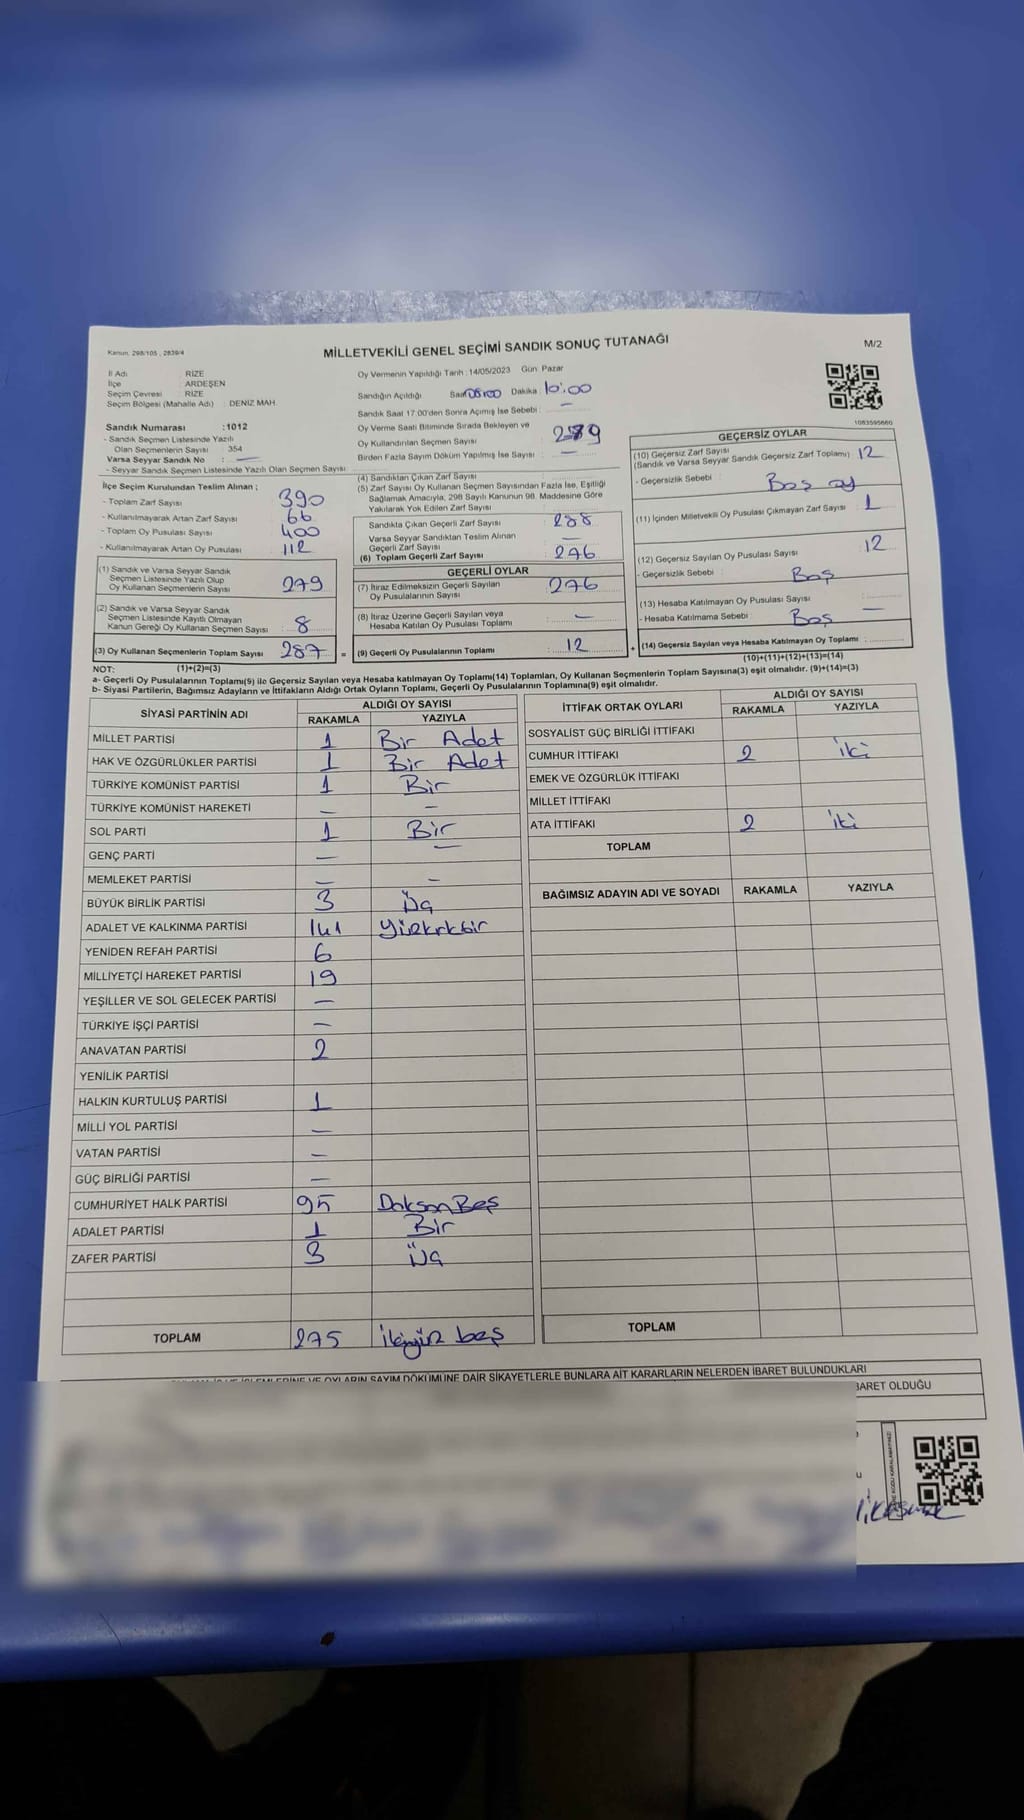 Kanun, 298/105 , 2839/4
MİLLETVEKİLİ GENEL SEÇİMİ SANDIK SONUÇ TUTANAĞI
M/2
İl Adı RİZE
İlçe ARDEŞEN
Seçim Çevresi RİZE
Seçim Bölgesi (Mahalle Adı) : DENİZ MAH.
Oy Vermenin Yapıldığı Tarih : 14/05/2023 Gün Pazar
Sandığın Açıldığı Saat 08:00 Dakika : 10:00
Sandık Saat 17:00'den Sonra Açımış İse Sebebi : —
Oy Verme Saati Bitiminde Sırada Bekleyen ve
Oy Kullandırılan Seçmen Sayısı
Birden Fazla Sayım Döküm Yapılmış İse Sayısı : —
1083595660
Sandık Numarası :1012
- Sandık Seçmen Listesinde Yazılı
Olan Seçmenlerin Sayısı : 354
Varsa Seyyar Sandık No : —
- Seyyar Sandık Seçmen Listesinde Yazılı Olan Seçmen Sayısı :
İlçe Seçim Kurulundan Teslim Alınan ;
- Toplam Zarf Sayısı 390
- Kullanılmayarak Artan Zarf Sayısı 66
- Toplam Oy Pusulası Sayısı 400
- Kullanılmayarak Artan Oy Pusulası 112
(1) Sandık ve Varsa Seyyar Sandık
Seçmen Listesinde Yazılı Olup
Oy Kullanan Seçmenlerin Sayısı 279
(2) Sandık ve Varsa Seyyar Sandık
Seçmen Listesinde Kayıtlı Olmayan
Kanun Gereği Oy Kullanan Seçmen Sayısı : 8
(3) Oy Kullanan Seçmenlerin Toplam Sayısı 287 =
(1)+(2)=(3)
(4) Sandıktan Çıkan Zarf Sayısı
(5) Zarf Sayısı Oy Kullanan Seçmen Sayısından Fazla İse, Eşitliği
Sağlamak Amacıyla, 298 Sayılı Kanunun 98. Maddesine Göre
Yakılarak Yok Edilen Zarf Sayısı :
Sandıkta Çıkan Geçerli Zarf Sayısı : 288
Varsa Seyyar Sandıktan Teslim Alınan
Geçerli Zarf Sayısı : —
(6) Toplam Geçerli Zarf Sayısı : 276
GEÇERLİ OYLAR
(7) İtiraz Edilmeksizin Geçerli Sayılan
Oy Pusulalarının Sayısı : 276
(8) İtiraz Üzerine Geçerli Sayılan veya
Hesaba Katılan Oy Pusulası Toplamı : —
(9) Geçerli Oy Pusulalarının Toplamı : 12 +
GEÇERSİZ OYLAR
(10) Geçersiz Zarf Sayısı
(Sandık ve Varsa Seyyar Sandık Geçersiz Zarf Toplamı) 12
- Geçersizlik Sebebi : Boş oy
(11) İçinden Milletvekili Oy Pusulası Çıkmayan Zarf Sayısı 1
(12) Geçersiz Sayılan Oy Pusulası Sayısı : 12
- Geçersizlik Sebebi : Boş
(13) Hesaba Katılmayan Oy Pusulası Sayısı : —
- Hesaba Katılmama Sebebi : Boş
(14) Geçersiz Sayılan veya Hesaba Katılmayan Oy Toplamı :
(10)+(11)+(12)+(13)=(14)
NOT:
a- Geçerli Oy Pusulalarının Toplamı(9) ile Geçersiz Sayılan veya Hesaba katılmayan Oy Toplamı(14) Toplamları, Oy Kullanan Seçmenlerin Toplam Sayısına(3) eşit olmalıdır. (9)+(14)=(3)
b- Siyasi Partilerin, Bağımsız Adayların ve İttifakların Aldığı Ortak Oyların Toplamı, Geçerli Oy Pusulalarının Toplamına(9) eşit olmalıdır.
SİYASİ PARTİNİN ADI ALDIĞI OY SAYISI
RAKAMLA YAZIYLA
MİLLET PARTİSİ 1 Bir Adet
HAK VE ÖZGÜRLÜKLER PARTİSİ 1 Bir Adet
TÜRKİYE KOMÜNİST PARTİSİ 1 Bir
TÜRKİYE KOMÜNİST HAREKETİ — —
SOL PARTİ 1 Bir
GENÇ PARTİ — —
MEMLEKET PARTİSİ — —
BÜYÜK BİRLİK PARTİSİ 3 Üç
ADALET VE KALKINMA PARTİSİ 141
YENİDEN REFAH PARTİSİ 6
MİLLİYETÇİ HAREKET PARTİSİ 19
YEŞİLLER VE SOL GELECEK PARTİSİ —
TÜRKİYE İŞÇİ PARTİSİ —
ANAVATAN PARTİSİ 2
YENİLİK PARTİSİ
HALKIN KURTULUŞ PARTİSİ 1
MİLLİ YOL PARTİSİ —
VATAN PARTİSİ —
GÜÇ BİRLİĞİ PARTİSİ —
CUMHURİYET HALK PARTİSİ 95 Doksan Beş
ADALET PARTİSİ 1 Bir
ZAFER PARTİSİ 3 Üç
TOPLAM 275 İkiyüz beş
İTTİFAK ORTAK OYLARI ALDIĞI OY SAYISI
RAKAMLA YAZIYLA
SOSYALİST GÜÇ BİRLİĞİ İTTİFAKI
CUMHUR İTTİFAKI 2 iki
EMEK VE ÖZGÜRLÜK İTTİFAKI
MİLLET İTTİFAKI
ATA İTTİFAKI 2 iki
TOPLAM
BAĞIMSIZ ADAYIN ADI VE SOYADI RAKAMLA YAZIYLA
TOPLAM
OYLARIN SAYIM DÖKÜMÜNE DAİR ŞİKAYETLERLE BUNLARA AİT KARARLARIN NELERDEN İBARET BULUNDUKLARI
İBARET OLDUĞU